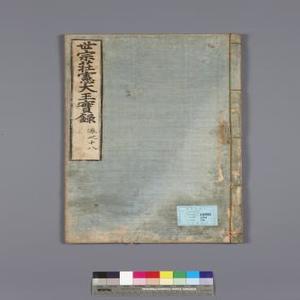 世宗莊憲大王實錄
卷之十八